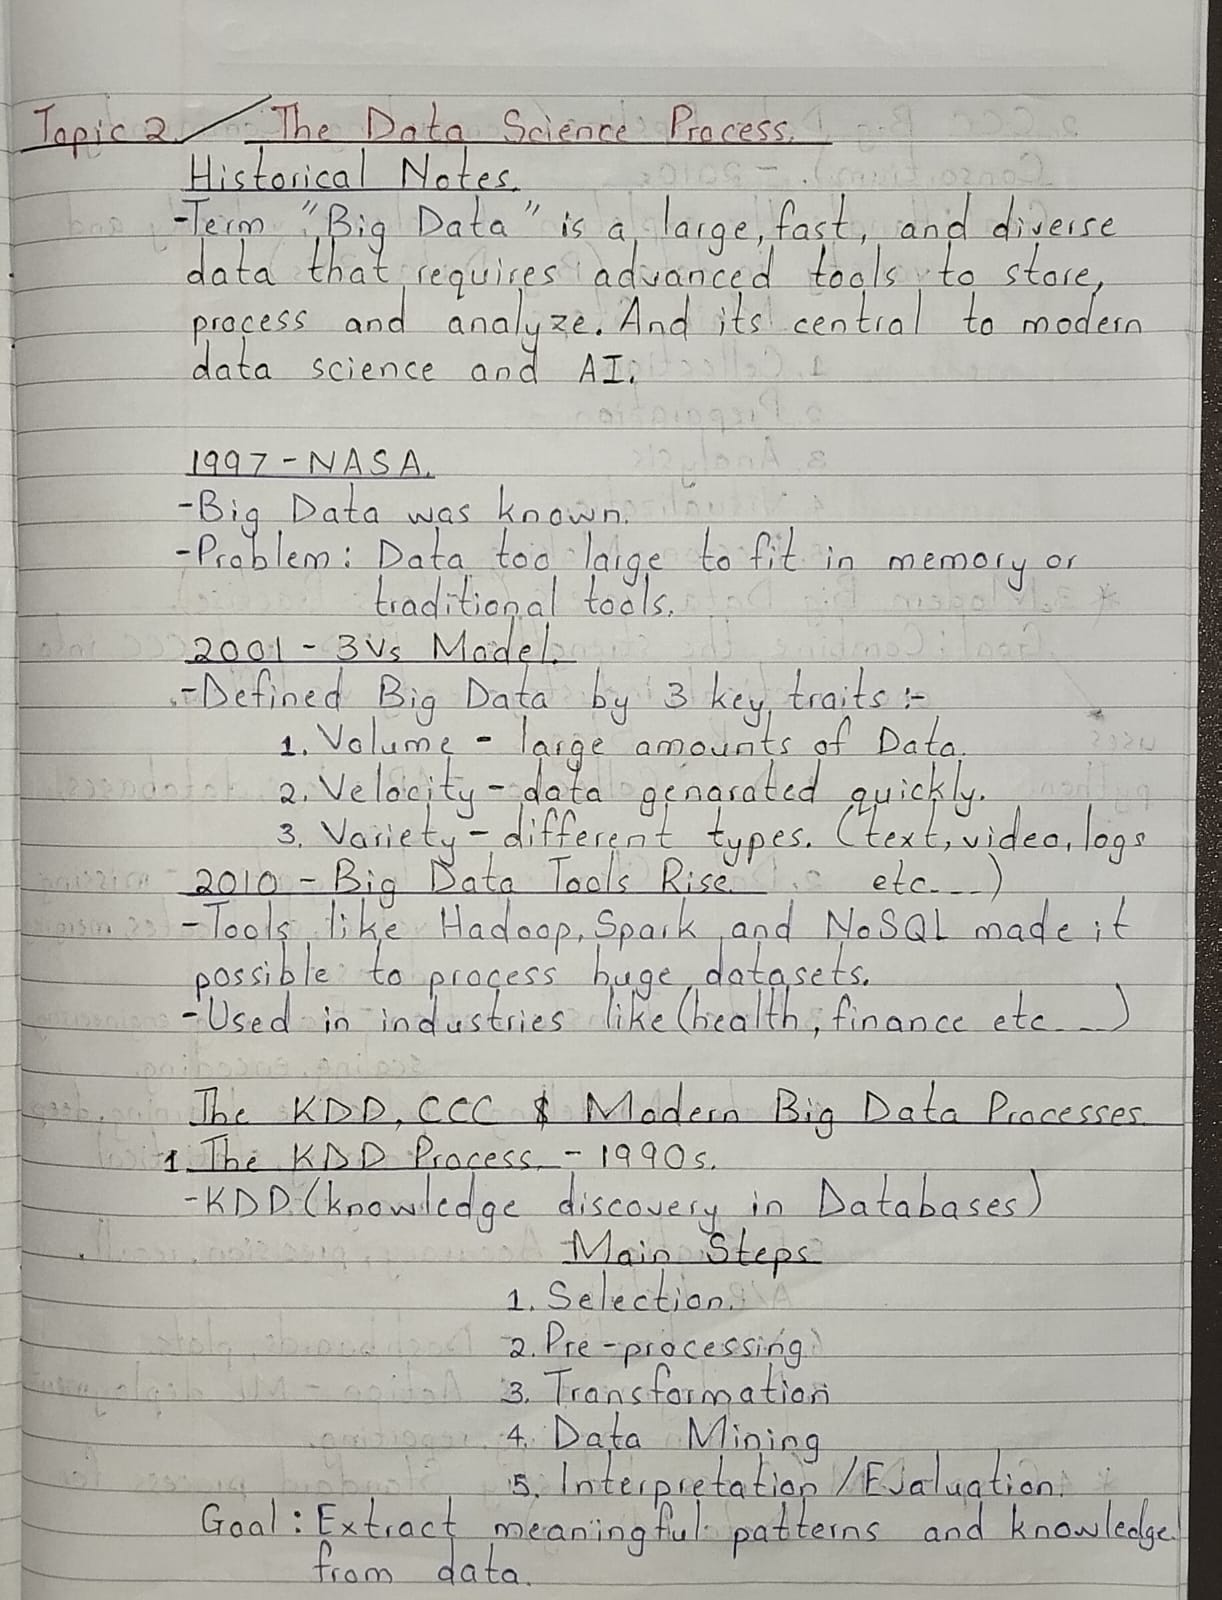 Topic 2. The Data Science Process.
Historical Notes.
-Term "Big Data" is a large, fast, and diverse
data that requires advanced tools to store,
process and analyze. And its central to modern
data science and AI.
1997 - NASA.
-Big Data was known.
-Problem: Data too large to fit in memory or
traditional tools.
2001 - 3Vs Model.
-Defined Big Data by 3 key traits :-
1. Volume - large amounts of Data.
2. Velocity - data genarated quickly.
3. Variety - different types. (text, video, logs
etc....)
2010 - Big Data Tools Rise.
-Tools like Hadoop, Spark and NoSQL made it
possible to process huge datasets.
-Used in industries like (health, finance etc...)
The KDD, CCC & Modern Big Data Processes.
1. The KDD Process. - 1990s.
-KDD (knowledge discovery in Databases)
Main Steps
1. Selection.
2. Pre-processing
3. Transformation
4. Data Mining
5. Interpretation / Evaluation.
Goal : Extract meaningful patterns and knowledge
from data.